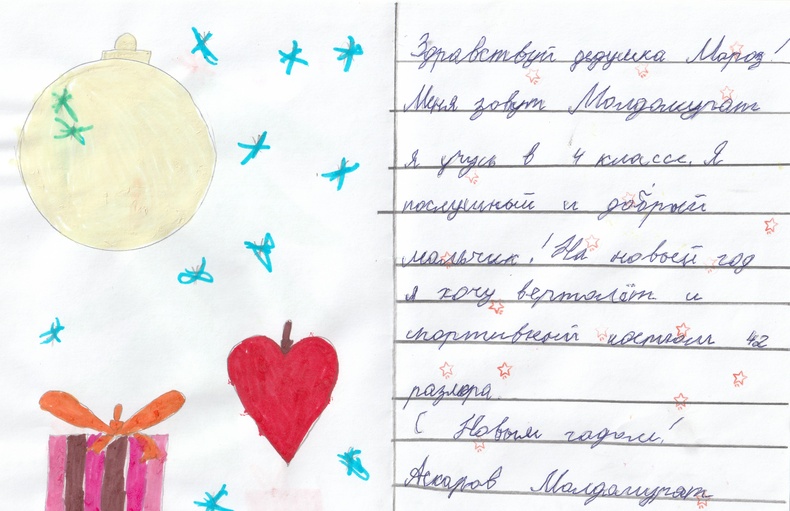 Здравствуй дедушка Мороз!
Меня зовут Молдомурат
я учусь в 4 классе. Я
послушный и добрый
мальчик! На новый год
я хочу вертолёт и
спортивный костюм 42
размера
С Новым годом!
Аскаров Молдомурат